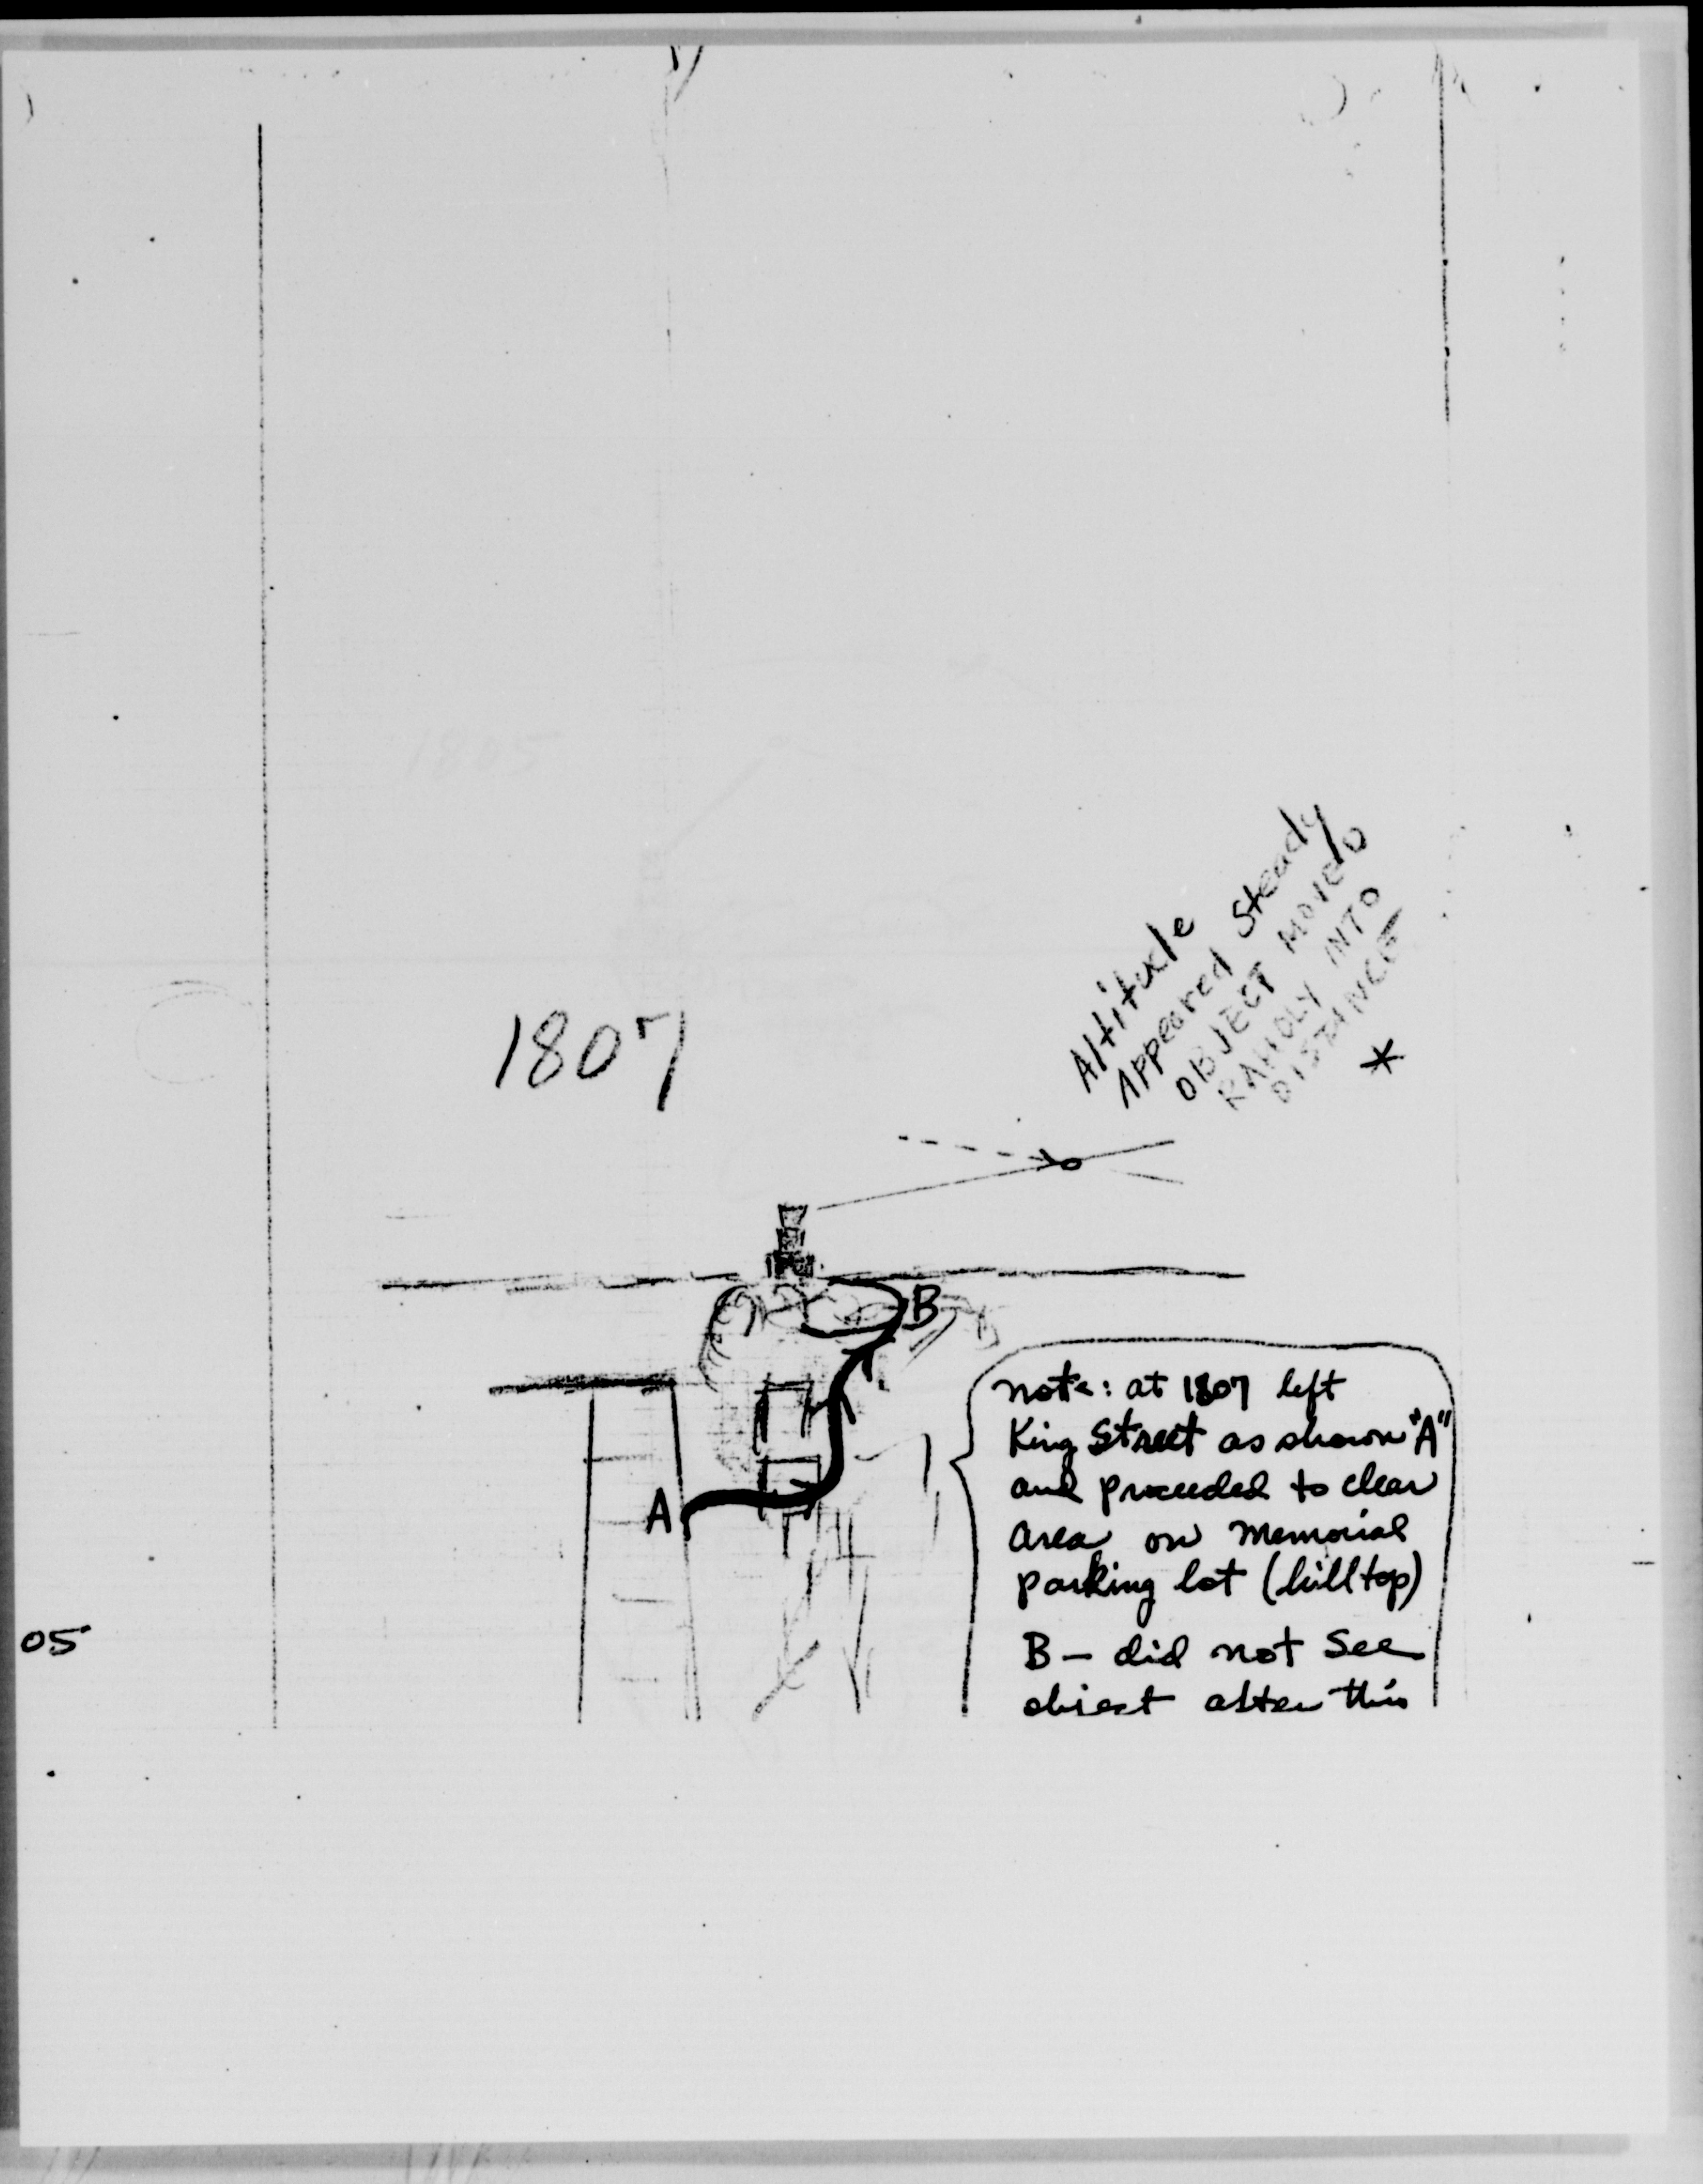 1805
Altitude
Appeared Steady
OBJECT MOVED
RAPIDLY INTO
DISTANCE
*
1807
B
A
note: at 1807 left
King Street as shown "A"
and proceeded to clear
area on Memorial
parking lot (hilltop)
B – did not see
object after this
05